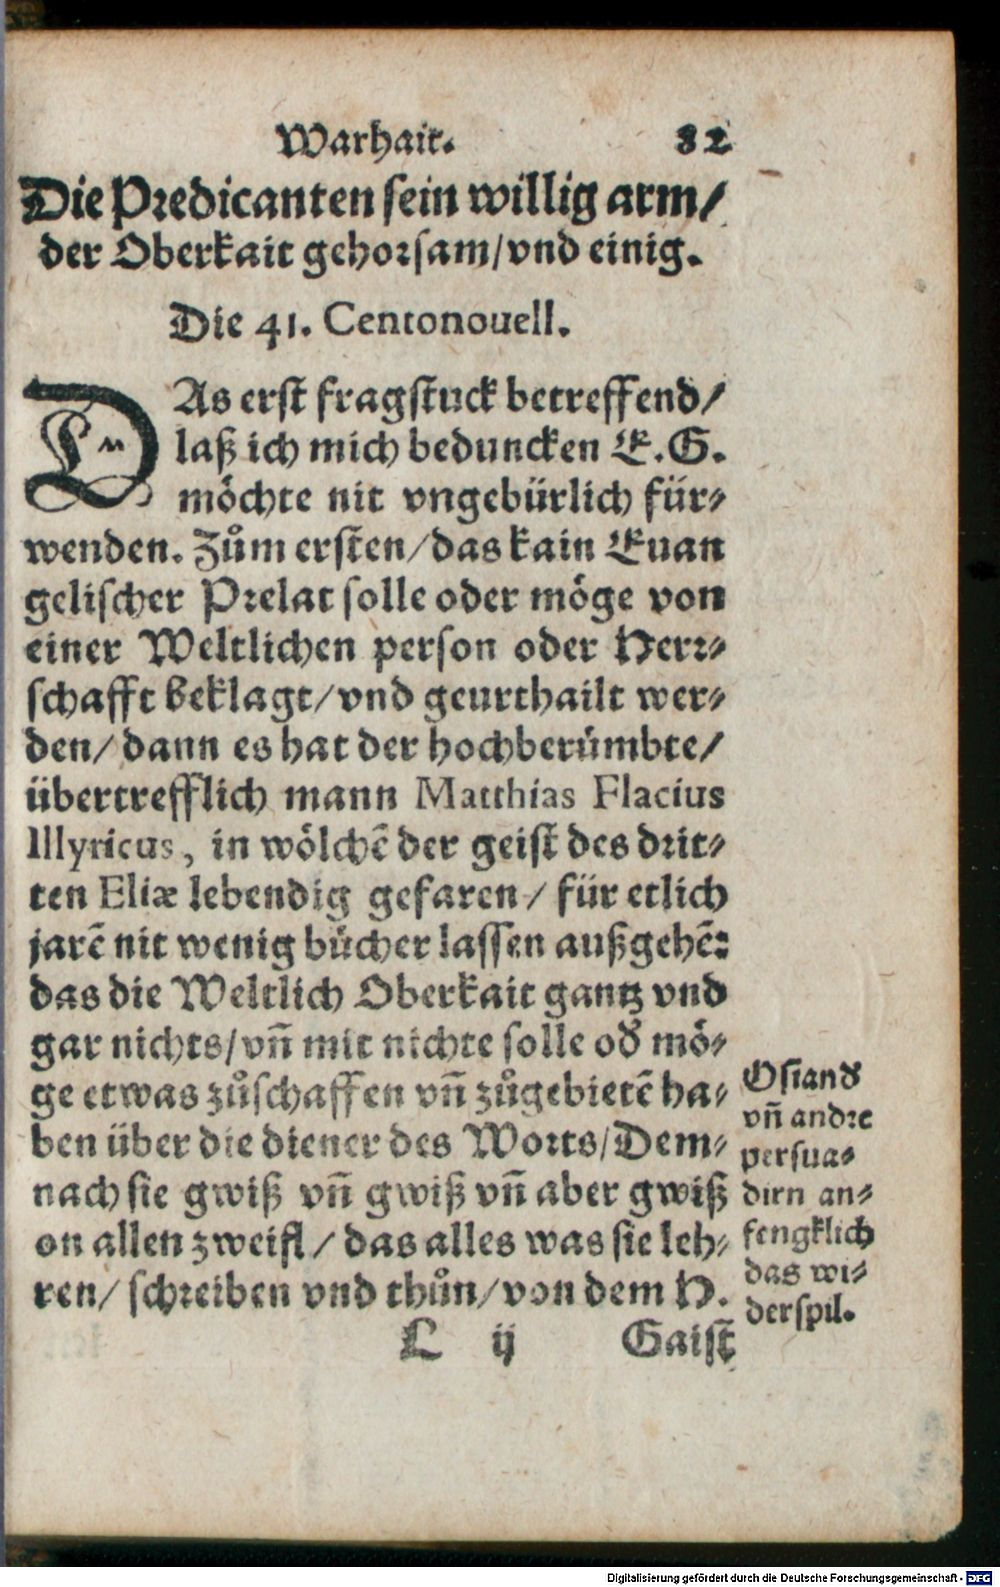 Warhait. 82
Die Predicanten sein willig arm/
der Oberkait gehorsam/vnd einig.
Die 41. Centonouell.
DAs erst fragstuck betreffend/
laß ich mich beduncken E.G.
möchte nit vngebürlich für⸗
wenden. Zům ersten/das kain Euan
gelischer Prelat solle oder möge von
einer Weltlichen person oder Herr⸗
schafft beklagt/vnd geurthailt wer⸗
den/dann es hat der hochberümbte/
übertrefflich mann Matthias Flacius
Illyricus, in wölchẽ der geist des drit⸗
ten Eliæ lebendig gefaren/ für etlich
jarẽ nit wenig bücher lassen außgehẽ:
das die Weltlich Oberkait gantz vnd
gar nichts/vñ mit nichte solle oď mö⸗
ge etwas zůschaffen vñ zůgebietẽ ha⸗
ben über die diener des Worts/Dem⸗
nach sie gwiß vñ gwiß vñ aber gwiß
on allen zweifl/ das alles was sie leh⸗
ren/ schreiben vnd thůn/von dem H.
L ij Gaist
Osianď
vñ andre
persua⸗
dirn an⸗
fengklich
das wi⸗
derspil.
Digitalisierung gefördert durch die Deutsche Forschungsgemeinschaft - DFG